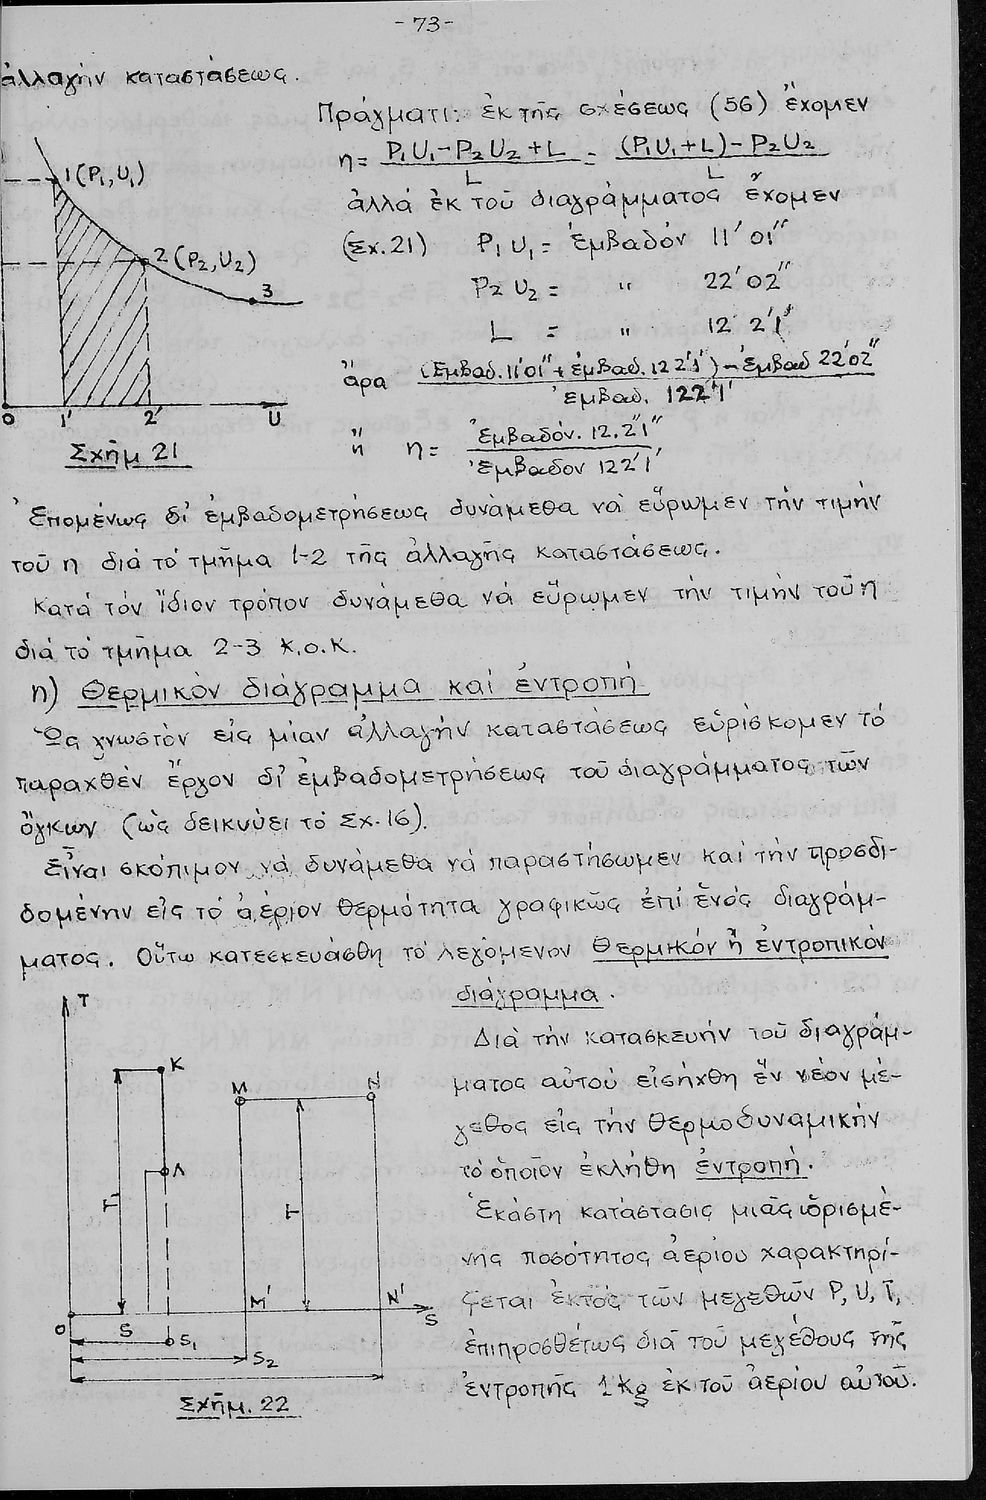 - 73 -
ἀλλαγὴν καταστάσεως.
Πράγματι: ἐκ τῆς σχέσεως (56) ἔχομεν
η = P₁U₁ - P₂U₂ + L / L = (P₁U₁ + L) - P₂U₂ / L
ἀλλά ἐκ τοῦ διαγράμματος ἔχομεν
(Σχ. 21) P₁U₁ = ἐμβαδόν 11′01″
P₂U₂ = " 22′02″
L = " 122′1′
ἄρα (Ἐμβαδ. 11′01″ + ἐμβαδ. 122′1′) - ἐμβαδ 22′02″ / ἐμβαδ. 122′1′
ἤ η = Ἐμβαδόν. 12.2″1″ / Ἐμβαδον 122′1′
1 (P₁, U₁)
2 (P₂, U₂)
3
0 1′ 2′ U
Σχῆμ 21
Ἑπομένως δι' ἐμβαδομετρήσεως δυνάμεθα νὰ εὕρωμεν τὴν τιμὴν
τοῦ η διά τὸ τμῆμα 1-2 τῆς ἀλλαγῆς καταστάσεως.
Κατά τὸν ἴδιον τρόπον δυνάμεθα νά εὕρωμεν τὴν τιμὴν τοῦ η
διά τὸ τμῆμα 2-3 κ.ο.κ.
η) Θερμικὸν διάγραμμα καί ἐντροπή
Ὡς γνωστὸν εἰς μίαν ἀλλαγὴν καταστάσεως εὑρίσκομεν τὸ
παραχθὲν ἔργον δι' ἐμβαδομετρήσεως τοῦ διαγράμματος τῶν
ὄγκων (ὡς δεικνύει τό Σχ. 16).
Εἶναι σκόπιμον νά δυνάμεθα νά παραστήσωμεν καί τὴν προσδι-
δομένην εἰς τό ἀέριον θερμότητα γραφικῶς ἐπί ἑνός διαγράμ-
ματος. Οὕτω κατεσκευάσθη τὸ λεγόμενον Θερμικόν ἤ ἐντροπικόν
διάγραμμα.
Διὰ τὴν κατασκευήν τοῦ διαγράμ-
ματος αὐτοῦ εἰσήχθη ἕν νέον μέ-
γεθος εἰς τὴν θερμοδυναμικὴν
τὸ ὁποῖον ἐκλήθη ἐντροπή.
Ἑκάστη κατάστασις μιᾶς ὡρισμέ-
νης ποσότητος ἀερίου χαρακτηρί-
ζεται ἐκτός τῶν μεγεθῶν P, U, T,
ἐπιπροσθέτως διὰ τοῦ μεγέθους τῆς
ἐντροπῆς 1 kg ἐκ τοῦ ἀερίου αὐτοῦ.
T
K
M N
Λ
T T
M′ N′
0 S S
S₁
S₂
Σχῆμ. 22